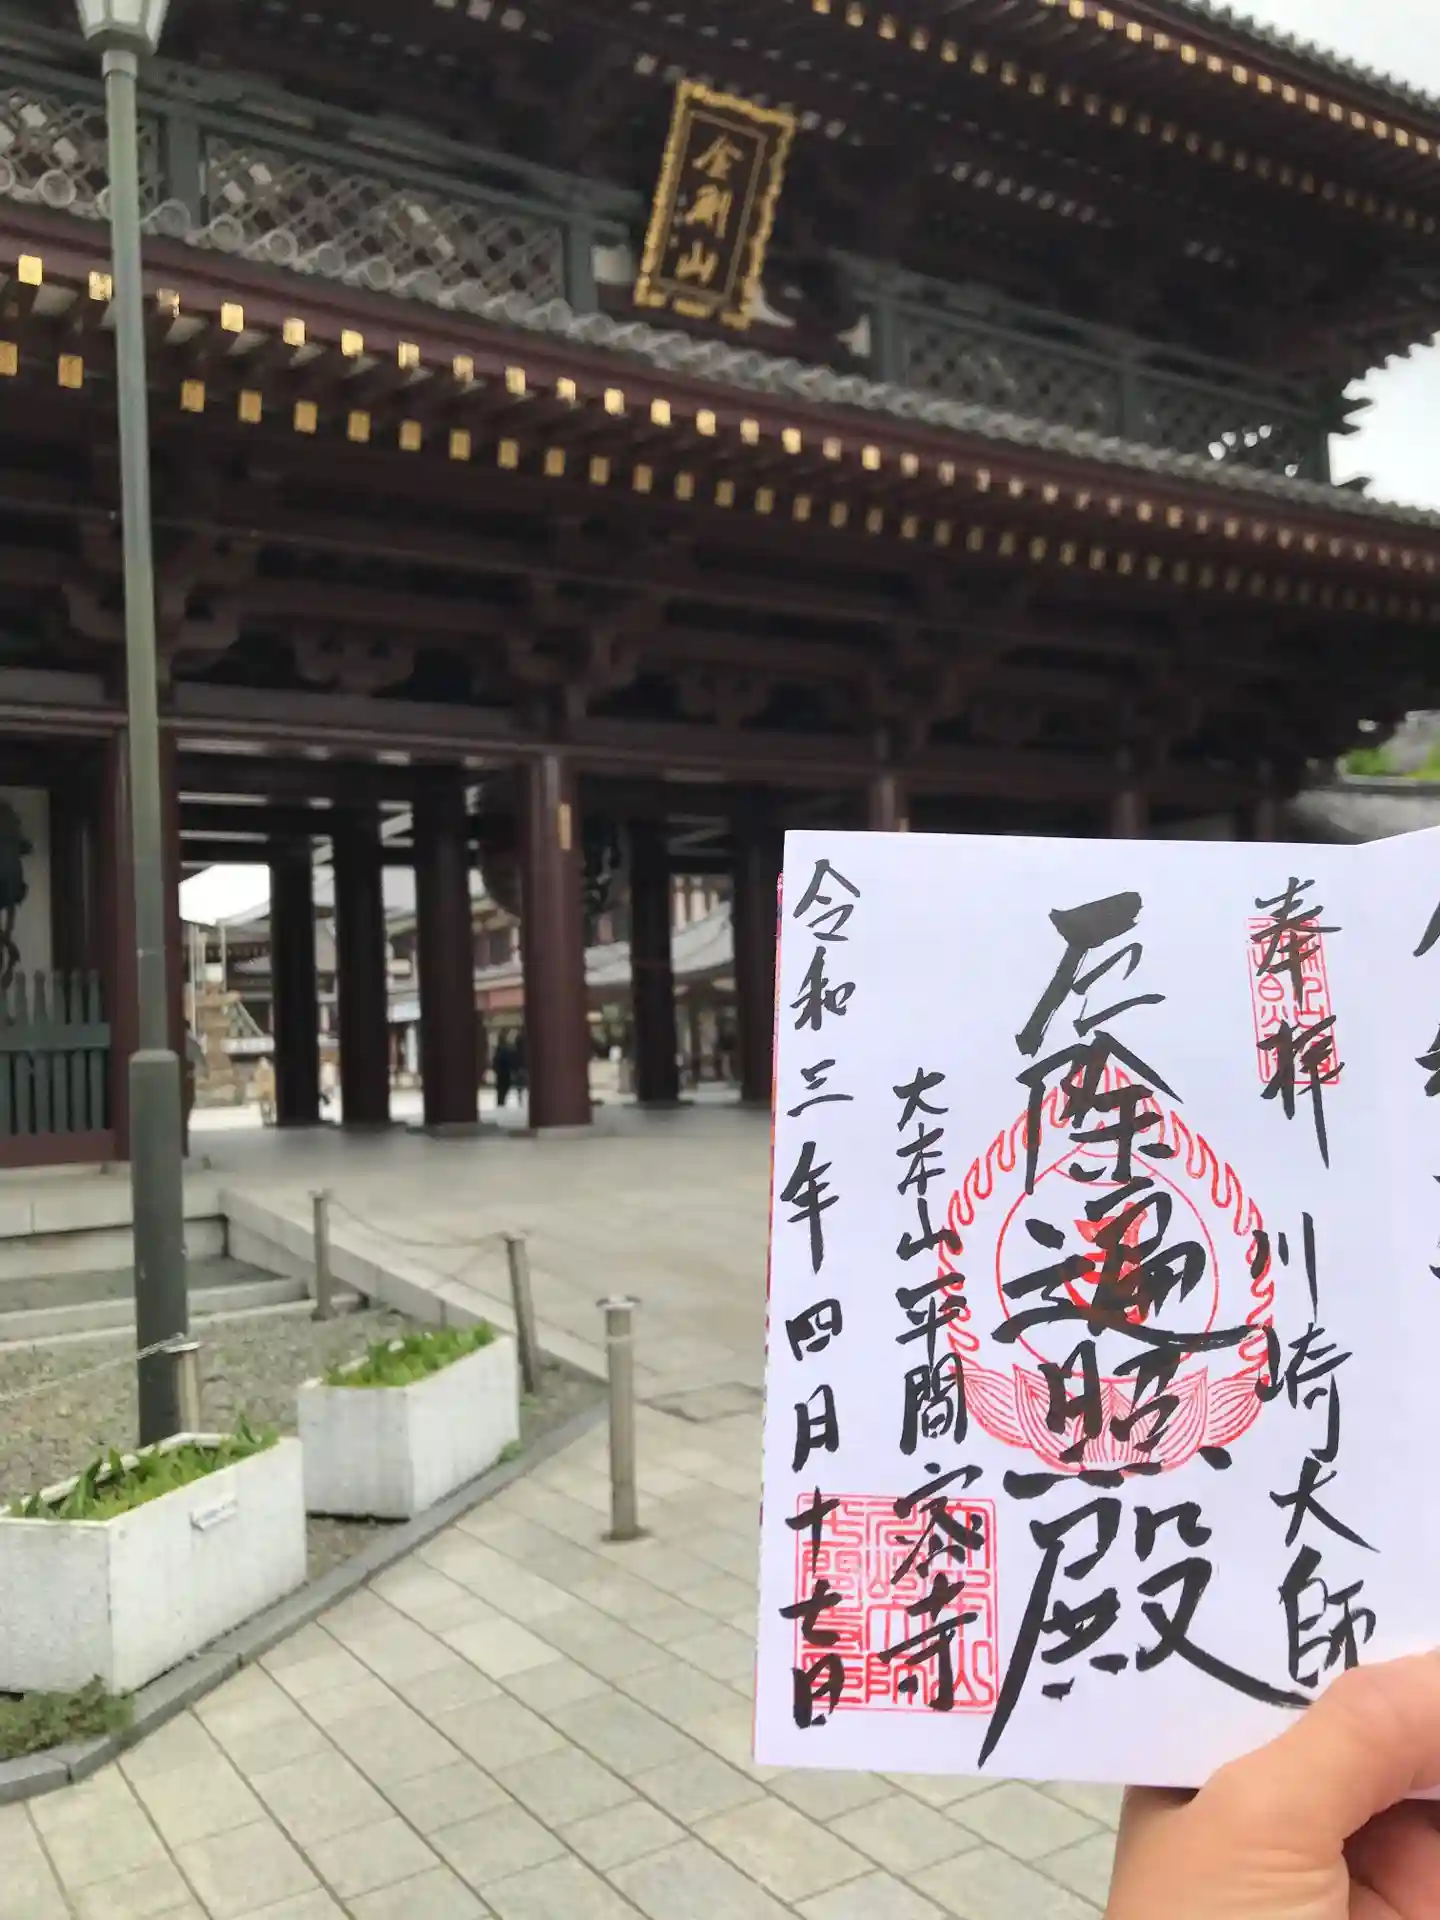 金剛山
奉拝 川崎大師
厄除遍照殿
大本山平間寺
令和三年四月十七日